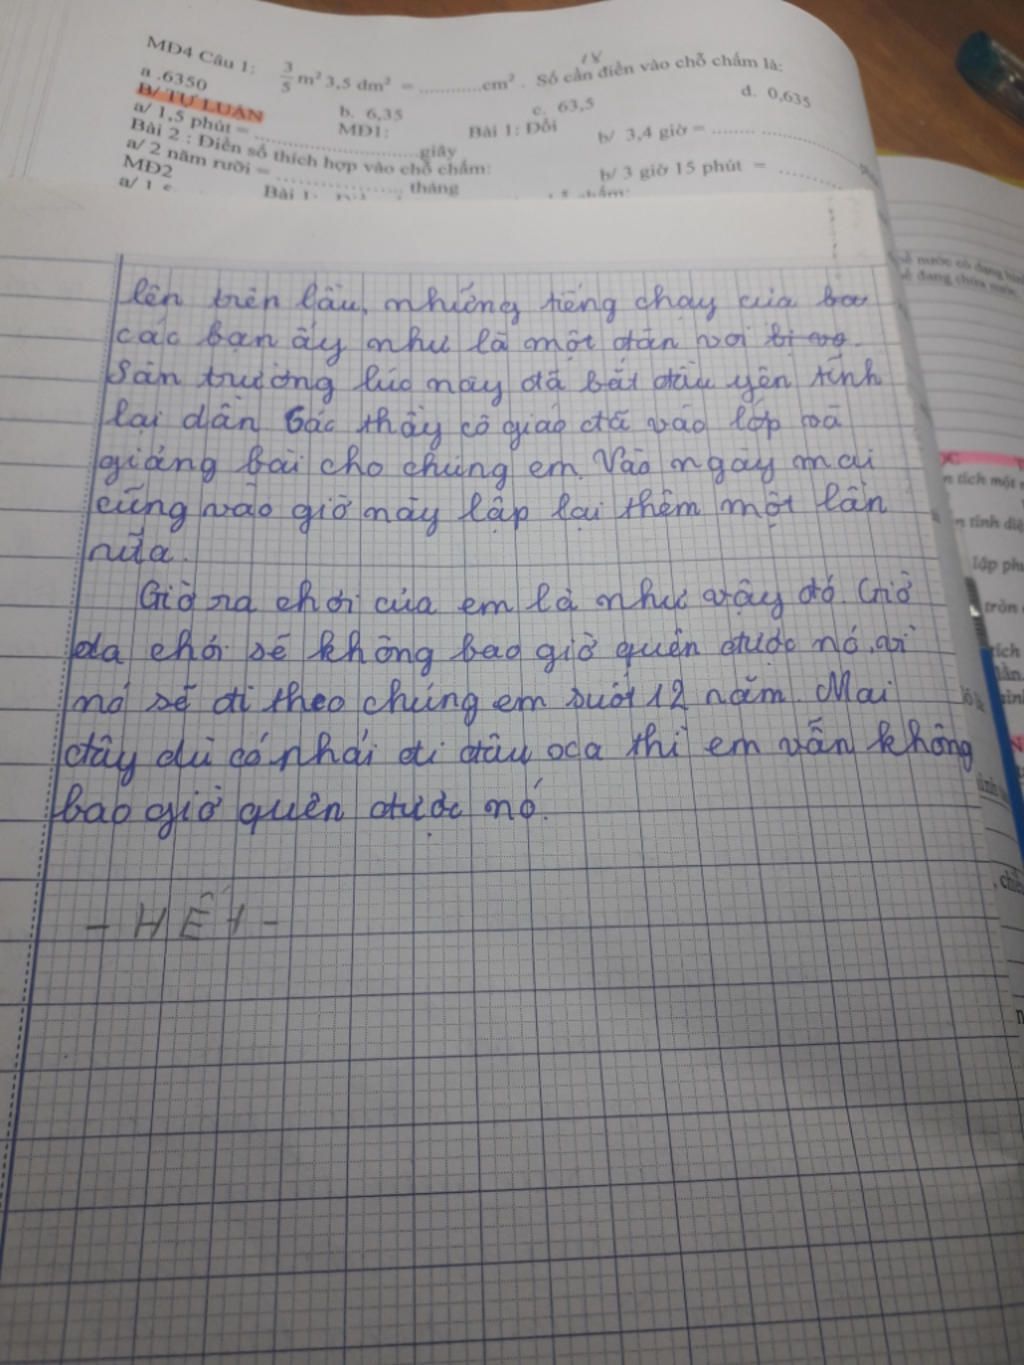 MD4 Câu 1: 3/5 m² 3,5 dm² = ............cm² . Số cần điền vào chỗ chấm là:
a .6350 b. 6,35 c. 63,5 d. 0,635
B/ TỰ LUẬN MD1: Bài 1: Đổi
a/ 1,5 phút = ........................giây b/ 3,4 giờ = ....... ..................
Bài 2 : Điền số thích hợp vào chỗ chấm:
a/ 2 năm rưỡi = ................... tháng b/ 3 giờ 15 phút = ..........
MD2 Bài 1:
a/ 1
lên trên lầu, những tiếng chạy của
các bạn ấy như là một đàn voi
Sân trường lúc này đã bắt đầu yên tĩnh
lại dần Các thầy cô giáo đã vào lớp và
giảng bài cho chúng em. Vào ngày mai
cũng vào giờ này lặp lại thêm một lần
nữa.
Giờ ra chơi của em là như vậy đó. Giờ
da chơi sẽ không bao giờ quên được nó, vì
nó sẽ đi theo chúng em suốt 12 năm. Mai
đây dù có phải đi đâu xa thì em vẫn không
bao giờ quên được nó.
- HẾT -
tích một
tính diệ
lập phư
tròn